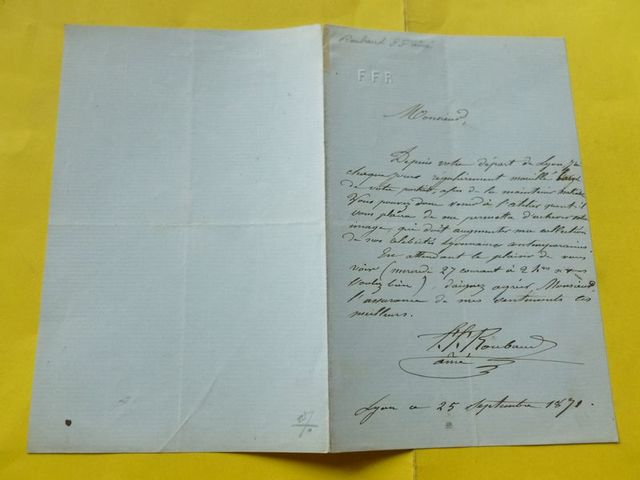 Roubaud
FFR
Monsieur,
Depuis votre départ de Lyon, j'ai
chaque jour régulièrement mouillé
de votre afin de la maintenir
Vous pouvez donc venir à l'atelier
vous plaira de me permettre d'achever votre
image, qui doit augmenter ma collection
de nos célébrités Lyonnaises contemporaines.
En attendant le plaisir de vous
voir (mercredi 27 courant à 2 hes
voulez bien), daignez agréer, Monsieur,
l'assurance de mes sentiments les
meilleurs.
Roubaud
ainé
Lyon ce 25 Septembre 1871.